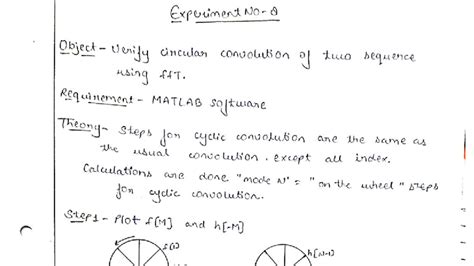 Experiment No-8
Object - Verify circular convolution of two sequence
using fft.
Requirement - MATLAB software
Theory - Steps for cyclic convolution are the same as
the usual convolution. except all index.
Calculations are done "mode N" = "on the wheel" steps
for cyclic convolution.
Step 1 - Plot f[M] and h[-M]
f[1]
h[N-1]